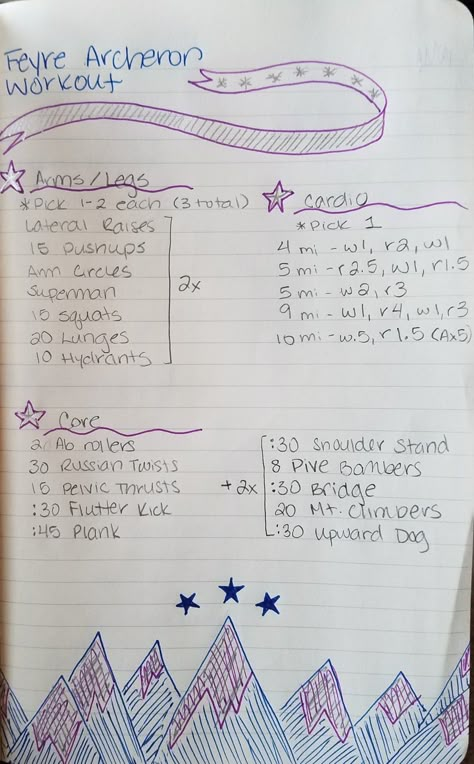 Feyre Archeron
Workout
Arms/Legs
*Pick 1-2 each (3 total)
Lateral Raises
15 Pushups
Arm Circles
Superman
15 Squats
20 Lunges
10 Hydrants
2x
Cardio
*Pick 1
4 mi - w1, r2, w1
5 mi - r2.5, w1, r1.5
5 mi - w2, r3
9 mi - w1, r4, w1, r3
10 mi - w.5, r1.5 (Ax5)
Core
Ab rollers
30 Russian Twists
15 Pelvic Thrusts
:30 Flutter Kick
:45 Plank
+ 2x
:30 Shoulder Stand
8 Dive Bombers
:30 Bridge
20 Mt. Climbers
:30 Upward Dog